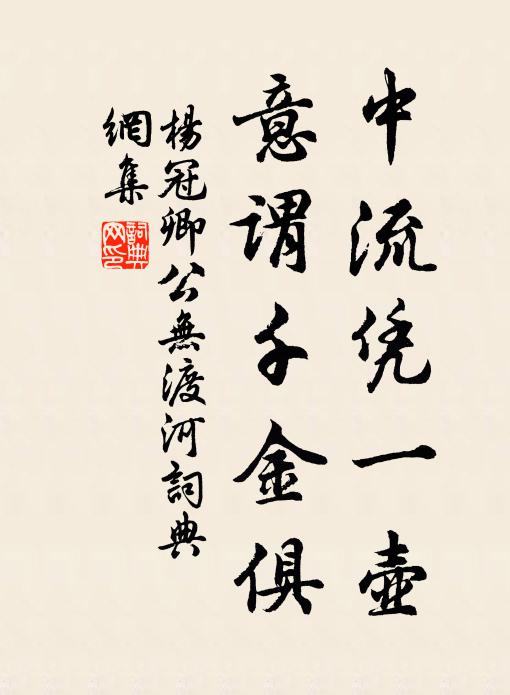 中流凭一壺
意謂千金俱
楊冠卿公無渡河詞典
網集
詞典
网印